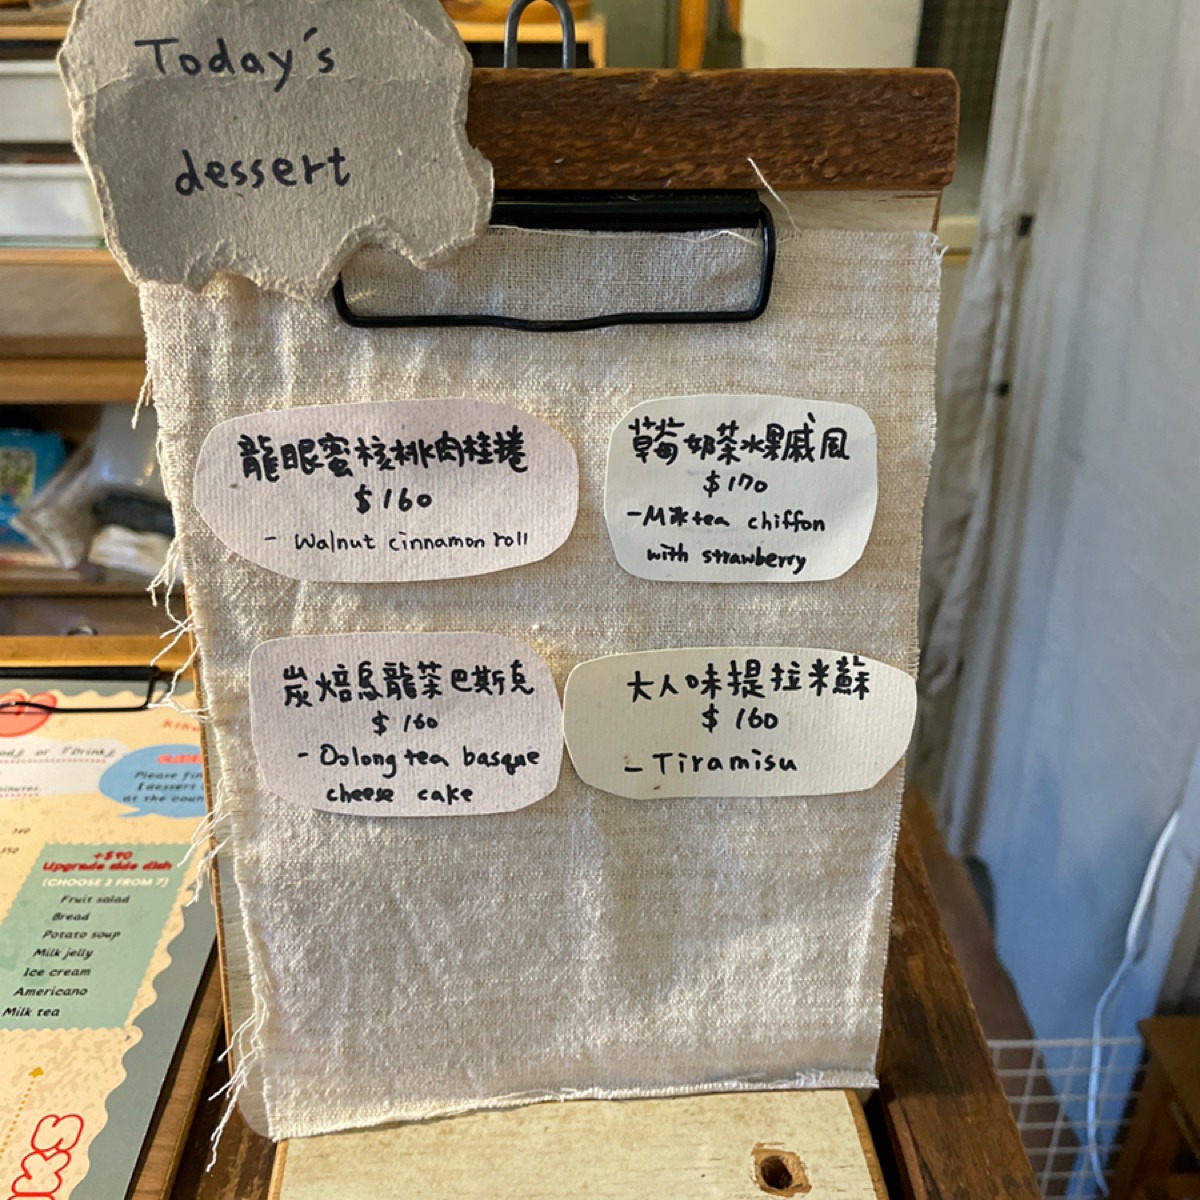 Today's
dessert
龍眼蜜核桃肉桂捲
$160
- Walnut cinnamon roll
莓奶茶水果戚風
$170
-Milktea chiffon
with strawberry
炭焙烏龍茶巴斯克
$160
- Oolong tea basque
cheese cake
大人味提拉米蘇
$160
- Tiramisu
Please
at the
+$90
Upgrade side dish
(CHOOSE 2 FROM 7)
Fruit salad
Bread
Potato soup
Milk jelly
Ice cream
Americano
Milk tea